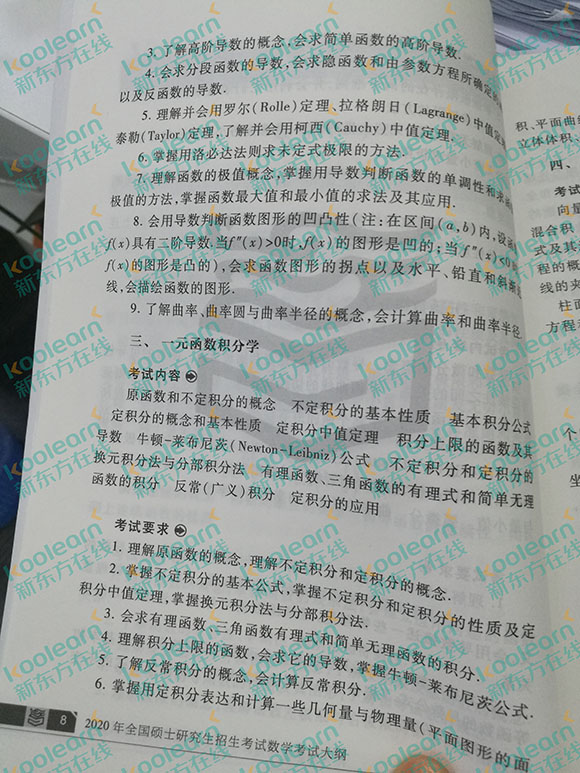 3. 了解高阶导数的概念,会求简单函数的高阶导数.
4. 会求分段函数的导数,会求隐函数和由参数方程所确定的
以及反函数的导数.
5. 理解并会用罗尔(Rolle)定理、拉格朗日(Lagrange)中值定
泰勒(Taylor)定理,了解并会用柯西(Cauchy)中值定理.
6. 掌握用洛必达法则求未定式极限的方法.
7. 理解函数的极值概念,掌握用导数判断函数的单调性和求
极值的方法,掌握函数最大值和最小值的求法及其应用.
8. 会用导数判断函数图形的凹凸性(注:在区间(a,b)内,设
f(x)具有二阶导数.当f″(x)>0时,f(x)的图形是凹的;当f″(x)<0
f(x)的图形是凸的),会求函数图形的拐点以及水平、铅直和斜渐
线,会描绘函数的图形.
9. 了解曲率、曲率圆与曲率半径的概念,会计算曲率和曲率半径.
三、一元函数积分学
考试内容
原函数和不定积分的概念 不定积分的基本性质 基本积分公式
定积分的概念和基本性质 定积分中值定理 积分上限的函数及其
导数 牛顿-莱布尼茨(Newton-Leibniz)公式 不定积分和定积分的
换元积分法与分部积分法 有理函数、三角函数的有理式和简单无理
函数的积分 反常(广义)积分 定积分的应用
考试要求
1. 理解原函数的概念,理解不定积分和定积分的概念.
2. 掌握不定积分的基本公式,掌握不定积分和定积分的性质及定
积分中值定理,掌握换元积分法与分部积分法.
3. 会求有理函数、三角函数有理式和简单无理函数的积分.
4. 理解积分上限的函数,会求它的导数,掌握牛顿-莱布尼茨公式.
5. 了解反常积分的概念,会计算反常积分.
6. 掌握用定积分表达和计算一些几何量与物理量(平面图形的面
8 2020年全国硕士研究生招生考试数学考试大纲
积、平面曲
立体体积、
四、
考试
向量
混合积
式及其
程的概
线的夹
柱面
方程
个
坐
koolearn
新东方在线